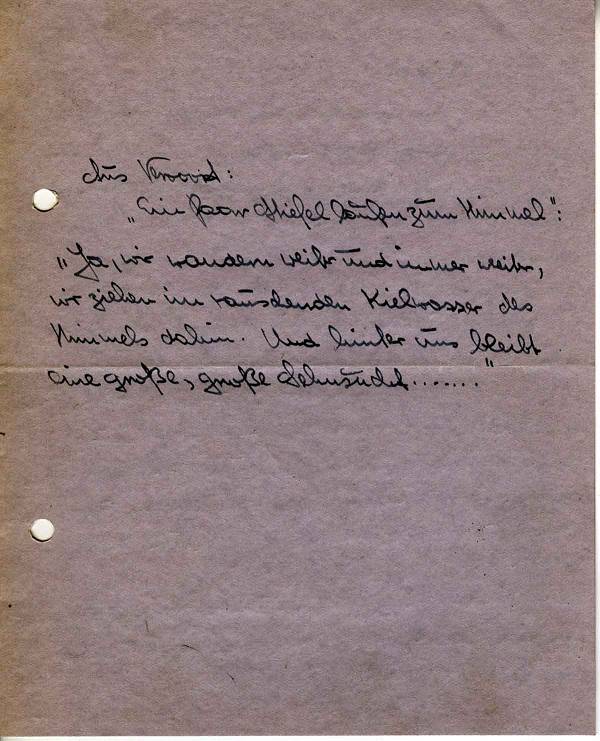 Aus
"Ein Paar Stiefel laufen zum Himmel":
"Ja, wir wandern weiter und immer weiter,
wir ziehen im rauschenden Kielwasser des
Himmels dahin. Und hinter uns bleibt
eine große, große Sehnsucht......."